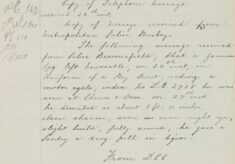 Copy of Telephone message
received 28th inst.
Copy of message received from
Metropolitan Police Bushey.
The following message received
from Police Beaconsfield, that a German
Spy left Newcastle, on 26th inst, in
Uniform of a Boy Scout, riding a
motor cycle, index No. L T 2908 he was
seen at 8am on 27th inst
he described as about 5ft, 10 inches,
clean shaven, scar on over right eye,
slight build, fully armed, he gave a
Sentry a drug pill in
From